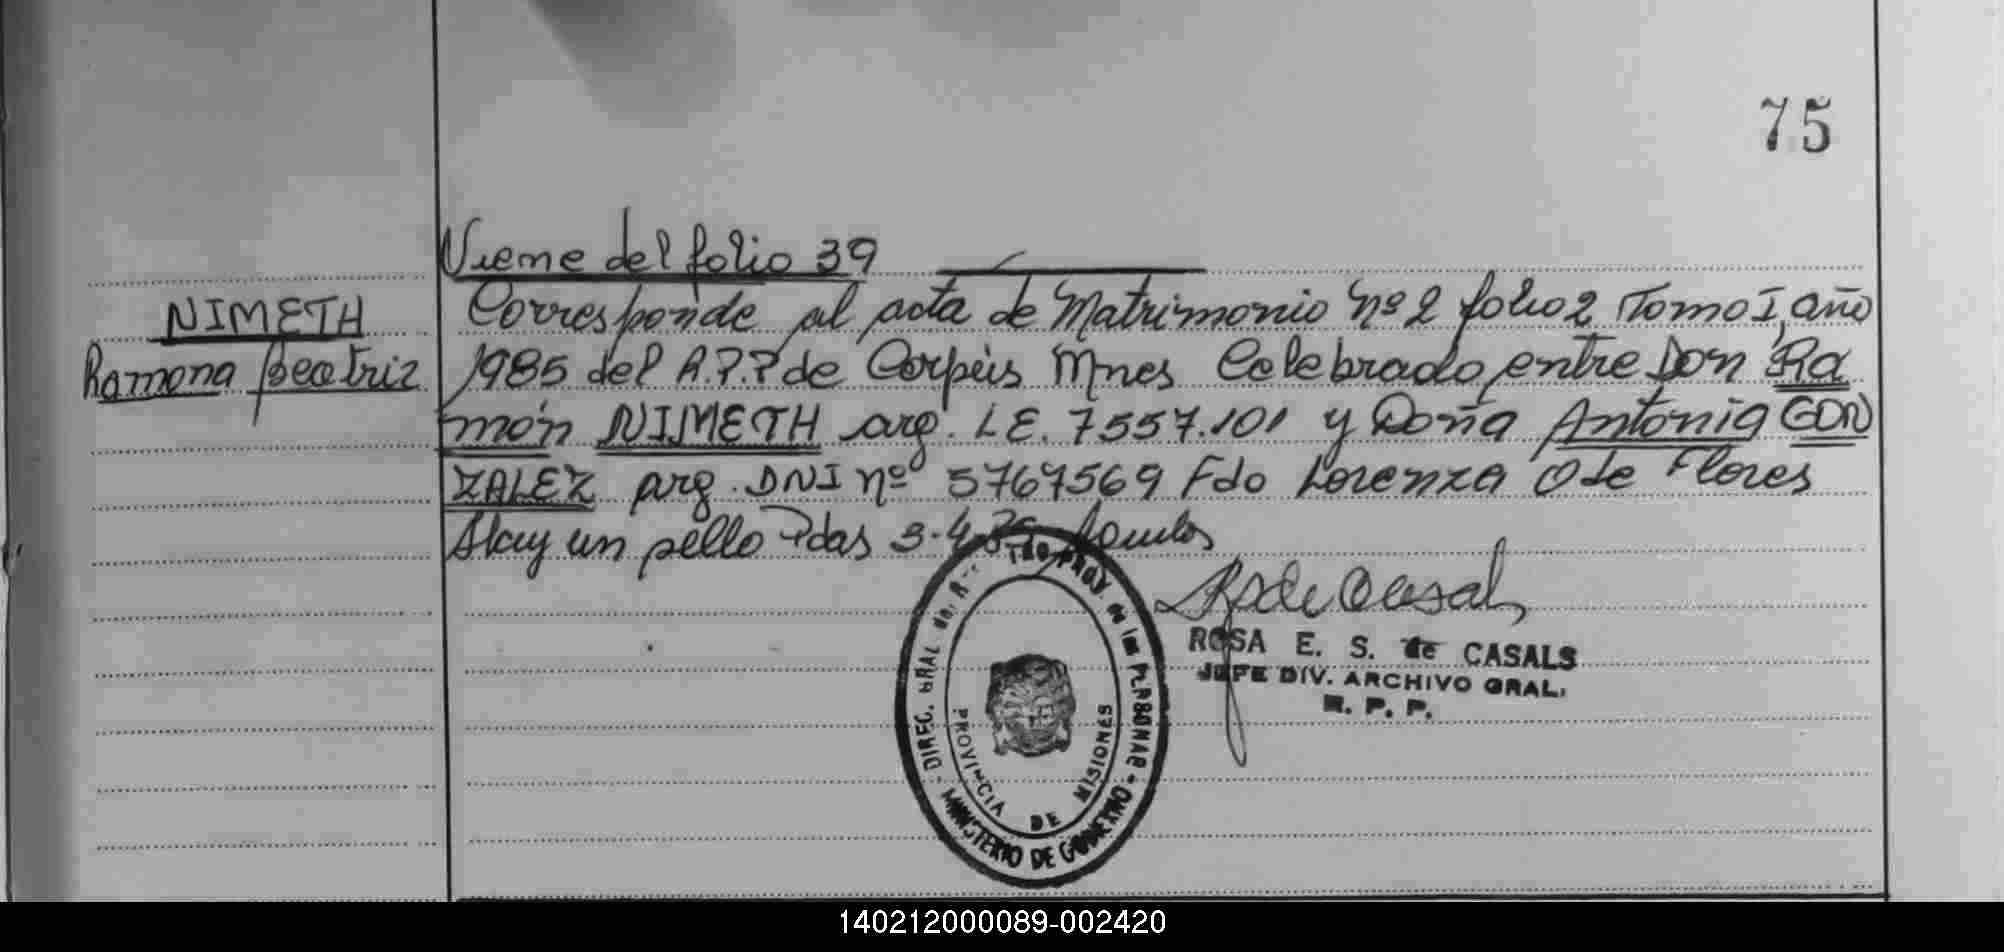 75
Viene del folio 39
NIMETH
Ramona Beatriz
Corresponde al acta de Matrimonio nº 2 folio 2 Tomo I, año
1985 del R.P.P de Corpus Mnes Celebrado entre Don Ra
món NIMETH arg. LE. 7557.101 y Doña Antonia GON
ZALEZ arg. DNI nº 5767569 Fdo Lorenza O de Flores
Hay un sello Pdas 3.4.
ROSA E. S. de CASALS
JEFE DIV. ARCHIVO GRAL.
R. P. P.
DIREC. GRAL del R. PROV de las PERSONAS
MINISTERIO DE GOBIERNO
PROVINCIA DE MISIONES
140212000089-002420